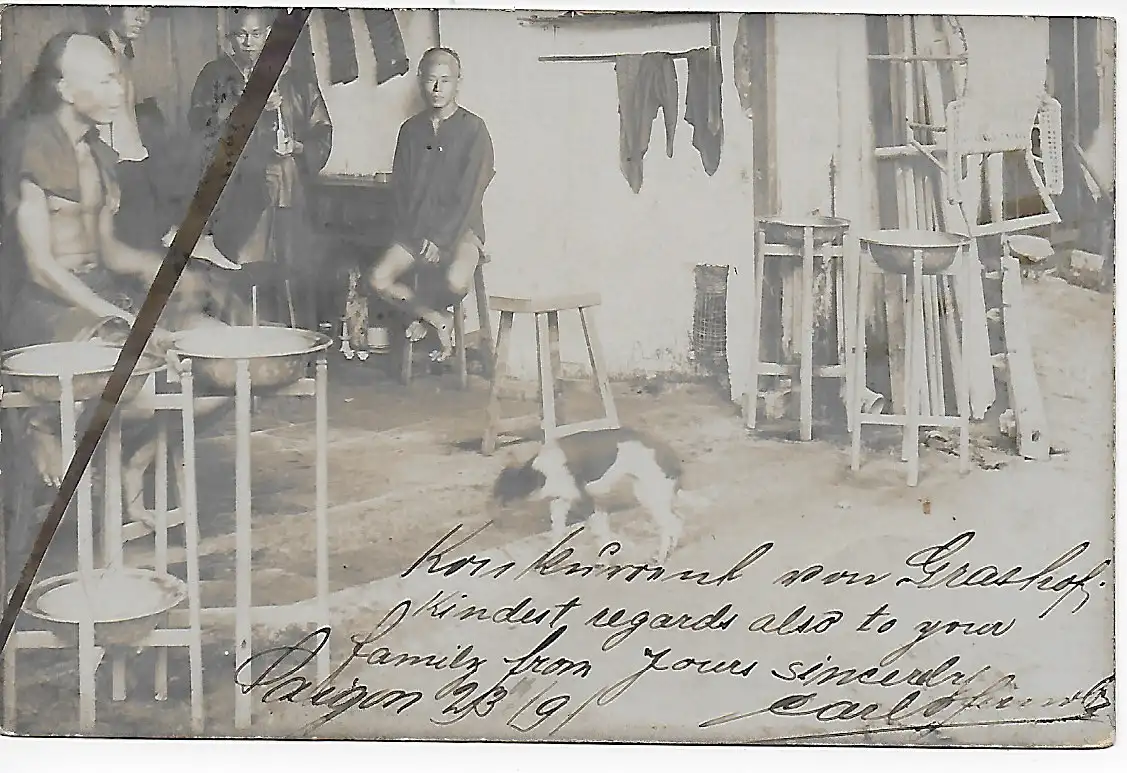 Konkurrent von Grashof.
Kindest regards also to your
family from Yours sincerely
Saigon 23/9 Carl